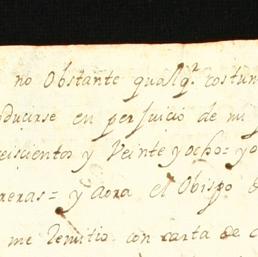 no Obstante qualq.ª costum
oducirse en perjuicio de mi
eiscientos y Veinte y ocho= yo
reras= y aora el Obispo d
me Remitio con carta de